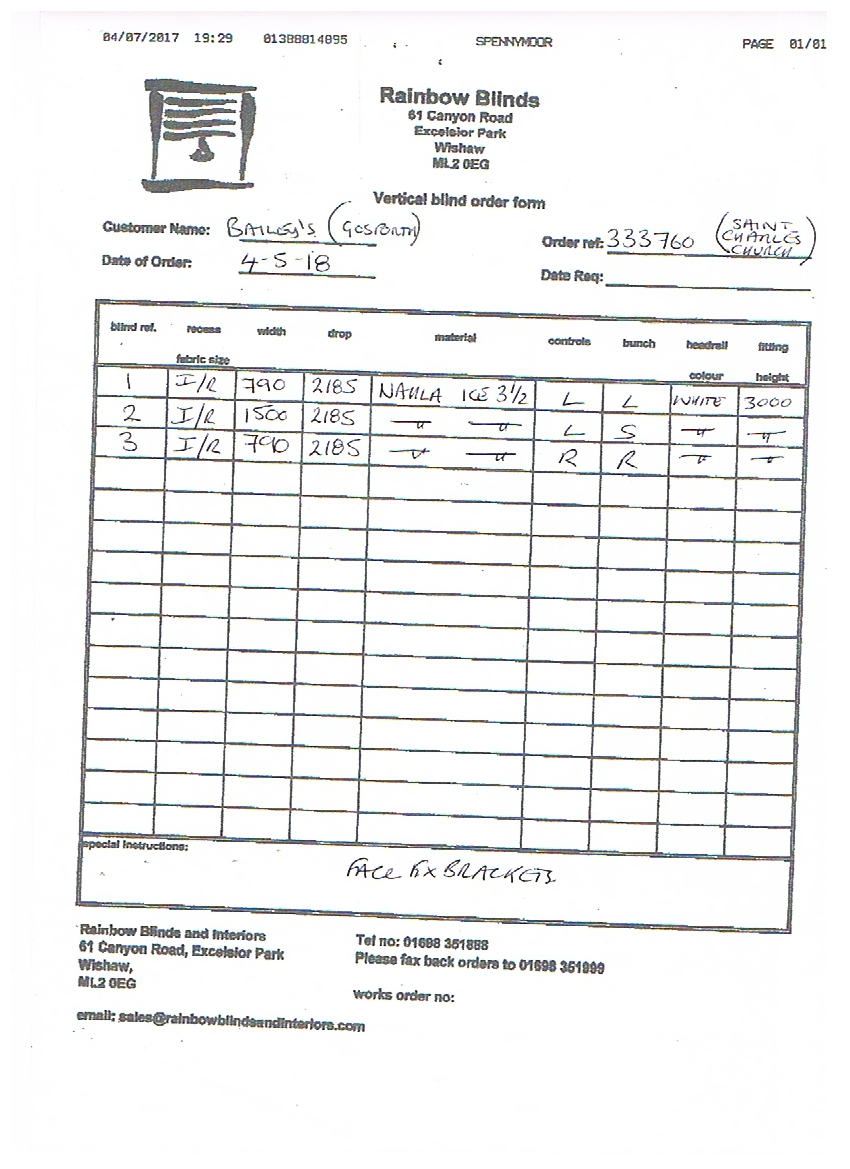 04/07/2017 19:29 01388814895 SPENNYMOOR PAGE 01/01
Rainbow Blinds
61 Canyon Road
Excelsior Park
Wishaw
ML2 0EG
Vertical blind order form
Customer Name: BAILEY'S (GOSFORTH)
Order ref: 333760 (SAINT CHARLES CHURCH)
Date of Order: 4-5-18
Date Req:
blind ref. recess width drop material controls bunch headrail fitting
fabric size colour height
1 I/R 790 2185 NAHLA ICE 3½ L L WHITE 3000
2 I/R 1500 2185 —"— —"— L S —"— —"—
3 I/R 790 2185 —"— —"— R R —"— —"—
special instructions:
FACE FIX BRACKETS
Rainbow Blinds and Interiors
61 Canyon Road, Excelsior Park
Wishaw,
ML2 0EG
Tel no: 01698 351888
Please fax back orders to 01698 351999
works order no:
email: sales@rainbowblindsandinteriors.com